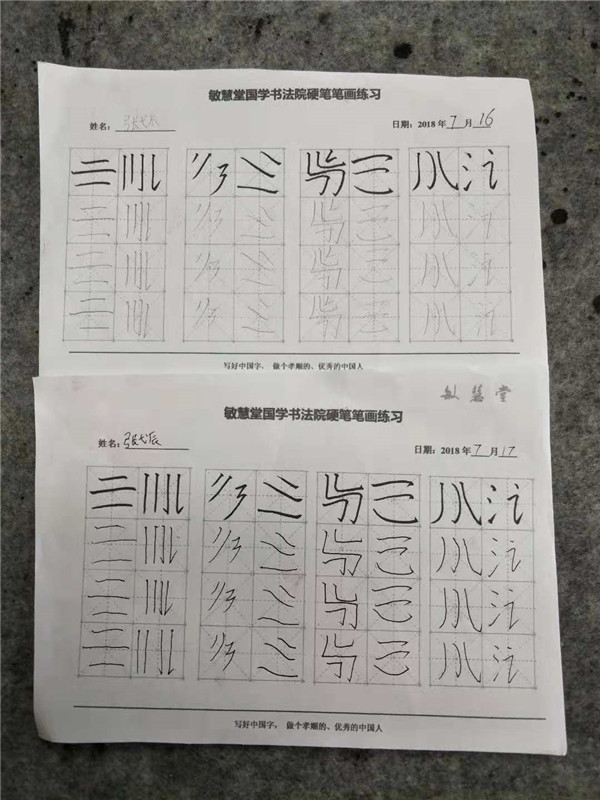 敏慧堂国学书法院硬笔笔画练习
姓名：张弋辰 日期：2018 年 7 月 16
写好中国字， 做个孝顺的、优秀的中国人
敏慧堂
敏慧堂国学书法院硬笔笔画练习
姓名：张弋辰 日期：2018 年 7 月 17
写好中国字， 做个孝顺的、优秀的中国人